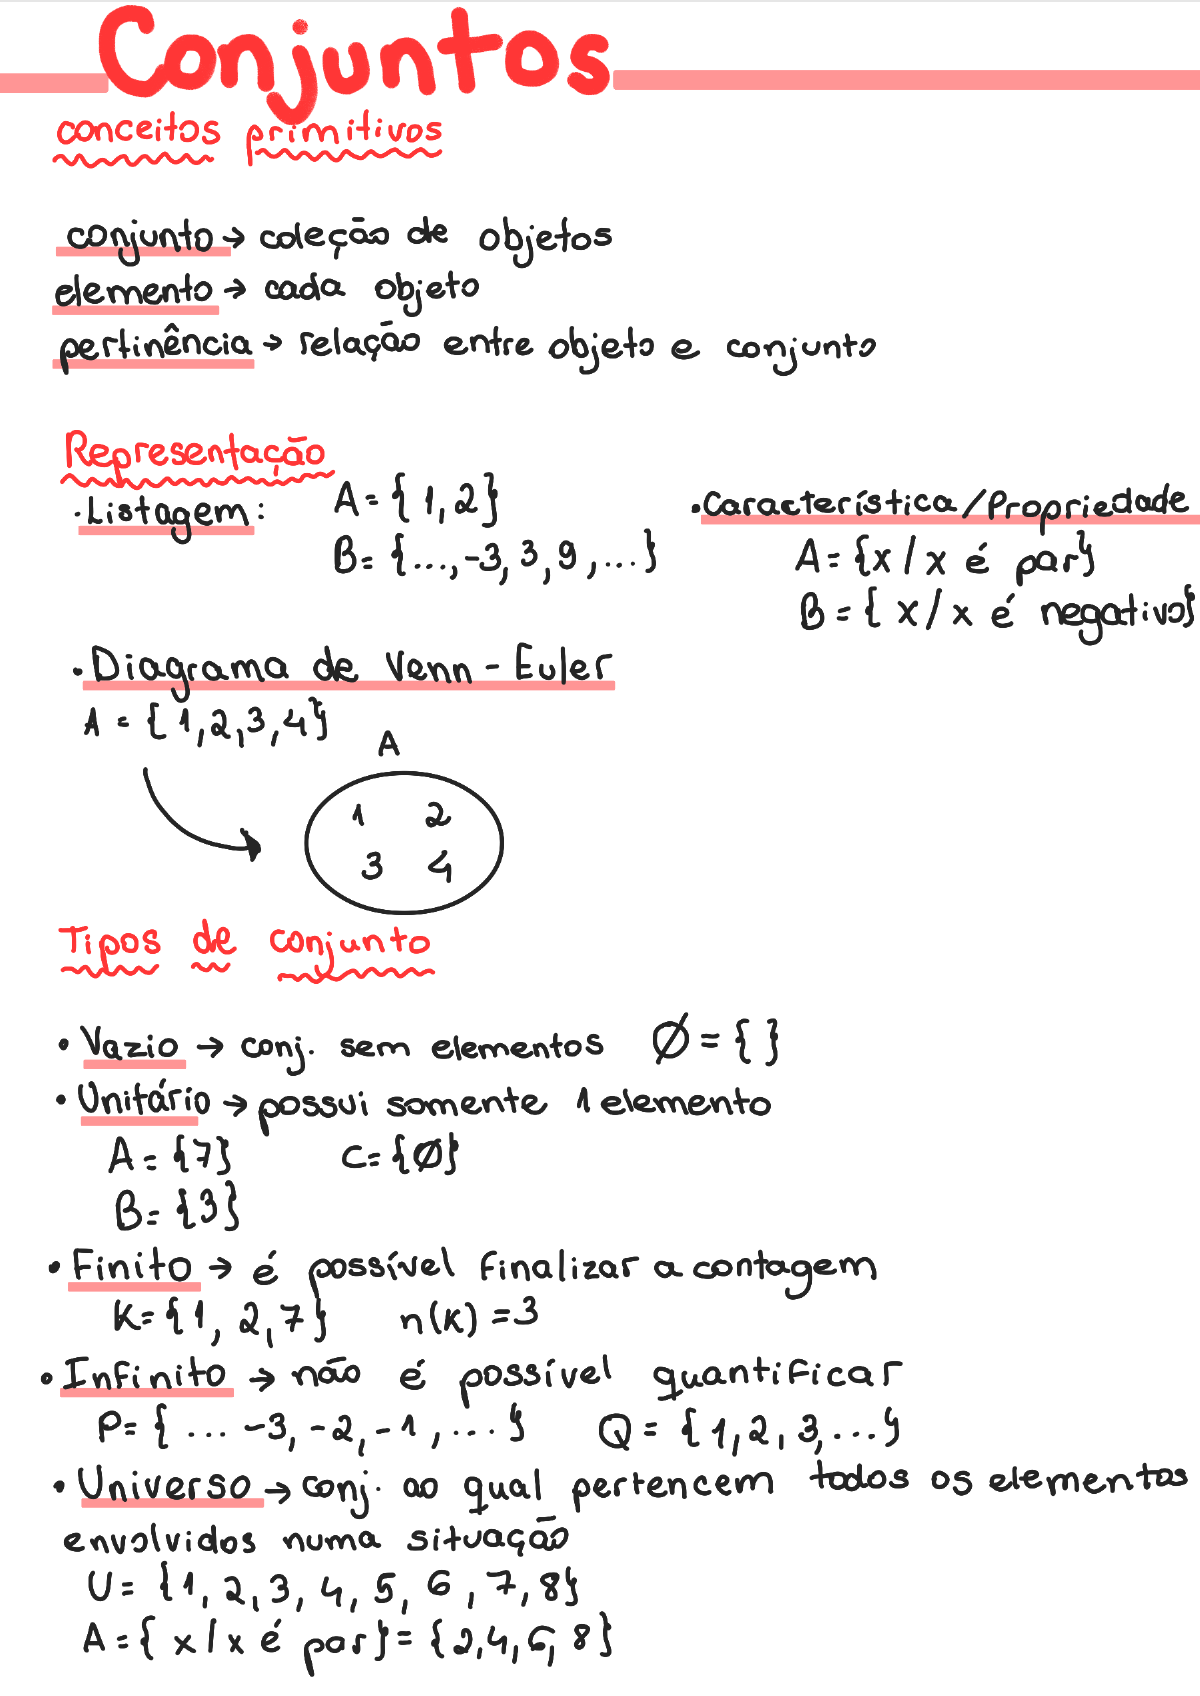 Conjuntos
conceitos primitivos
conjunto → coleção de objetos
elemento → cada objeto
pertinência → relação entre objeto e conjunto
Representação
· Listagem:
A = { 1, 2}
B = {..., -3, 3, 9, ...}
• Característica/Propriedade
A = {x / x é par}
B = { x / x é negativo}
• Diagrama de Venn - Euler
A = { 1, 2, 3, 4}
A
1 2
3 4
Tipos de conjunto
• Vazio → conj. sem elementos Ø = { }
• Unitário → possui somente 1 elemento
A = {7} C = {Ø}
B = {3}
• Finito → é possível finalizar a contagem
K = {1, 2, 7} n(K) = 3
• Infinito → não é possível quantificar
P = { ... -3, -2, -1, ...} Q = {1, 2, 3, ...}
• Universo → conj. ao qual pertencem todos os elementos
envolvidos numa situação
U = {1, 2, 3, 4, 5, 6, 7, 8}
A = { x / x é par} = {2, 4, 6, 8}